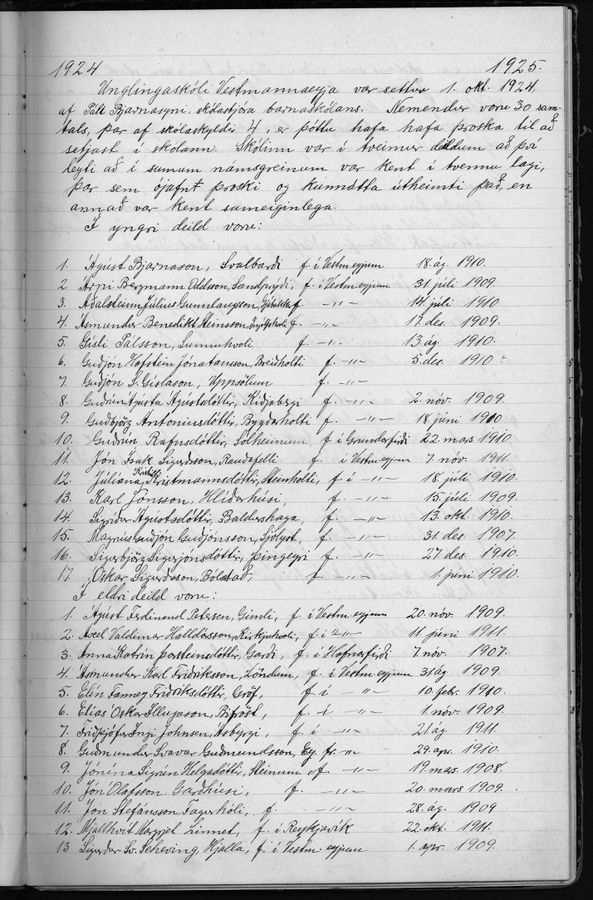 1924 1925.
Unglingaskóli Vestmannaeyja var settur 1. okt. 1924,
af Páli Bjarnasyni, skólastjóra barnaskólans. Nemendur voru 30 sam-
tals, þar af skólaskyldir 4, er þóttu hafa hafa þroska til að
setjast í skólann. Skólinn var í tveimur deildum að því
leyti að í sumum námsgreinum var kent í tvennu lagi,
þar sem ójafnt þroski og kunnátta útheimti það, en
annað var kent sameiginlega.
Í yngri deild voru:
1. Ágúst Bjarnason, Svalbarði f. í Vestm eyjum 18. ág. 1910.
2. Árni Bergmann Oddsson, Sandprýði, f. í Vestm eyjum 31 júlí 1909.
3. Aðalsteinn Júlíus Gunnlaugsson, f. -"- 14 júlí 1910
4. Ásmundur Benedikt Steinsson, f. -"- 17 des. 1909.
5. Gísli Pálsson, Sunnuhvoli f. -"- 13. ág. 1910.
6. Guðjón Hafstein Jónatansson, Breiðholti f. -"- 5. des. 1910
7. Guðjón G. Gíslason, Uppsölum f. -"-
8. Guðrún Ágústa Ágústsdóttir, Kiðjabergi f. -"- 2. nóv. 1909.
9. Guðbjörg Antoníusdóttir, Byggðarholti f. -"- 18 júní 1910
10. Guðrún Rafnsdóttir, Sólheimum f. í Grundarfirði 22 mars 1910.
11. Jón Ísak Sigurðsson, Rauðafelli f. í Vestm eyjum 7. nóv. 1911.
12. Júlíana Kristmannsdóttir, Steinholti, f. í -"- 18 júlí 1910.
13. Karl Jónsson, Hlíðarhúsi, f. -"- 15. júlí 1909.
14. Sigríður Ágústsdóttir, Baldurshaga, f. -"- 13. okt. 1910.
15. Magnús Guðjón Guðjónsson, Sjólyst, f. -"- 31 des 1907.
16. Sigurbjörg Sigurjónsdóttir, Þingeyri f. -"- 27 des. 1910.
17. Óskar Sigurðsson, Bólstað, f. -"- 1. júní 1910.
Í eldri deild voru:
1. Ágúst Ferdinand Petersen, Gimli, f. í Vestm eyjum 20. nóv. 1909.
2. Axel Valdimar Halldórsson, Kirkjuhóli, f. í -"- 11 júní 1911.
3. Anna Katrín Þorsteinsdóttir, Garði, f. í Hafnarfirði 7 nóv. 1907.
4. Ásmundur Karl Friðriksson, Löndum, f. í Vestm eyjum 31 ág. 1909.
5. Elín Fanney Friðriksdóttir, Gröf, f. í -"- 10. febr. 1910.
6. Elías Óskar Illugason, Bifröst, f. í -"- 1. nóv. 1909.
7. Friðþjófur Ingi Johnsen, Ásbyrgi, f. í -"- 21. ág. 1911.
8. Guðmundur Svavar Guðmundsson, f. -"- 29. apr. 1910.
9. Jónína Sigrún Helgadóttir, Steinum f. -"- 19. mars. 1908.
10. Jón Ólafsson Garðhúsi, f. -"- 20. mars 1909.
11. Jón Stefánsson Fagurhóli, f. -"- 28. ág. 1909
12. Mjallhvít Margrét Linnet, f. í Reykjavík 22. okt. 1911.
13 Sigurður Sv. Scheving, Hjalla, f. í Vestm. eyjum 1. apr. 1909.